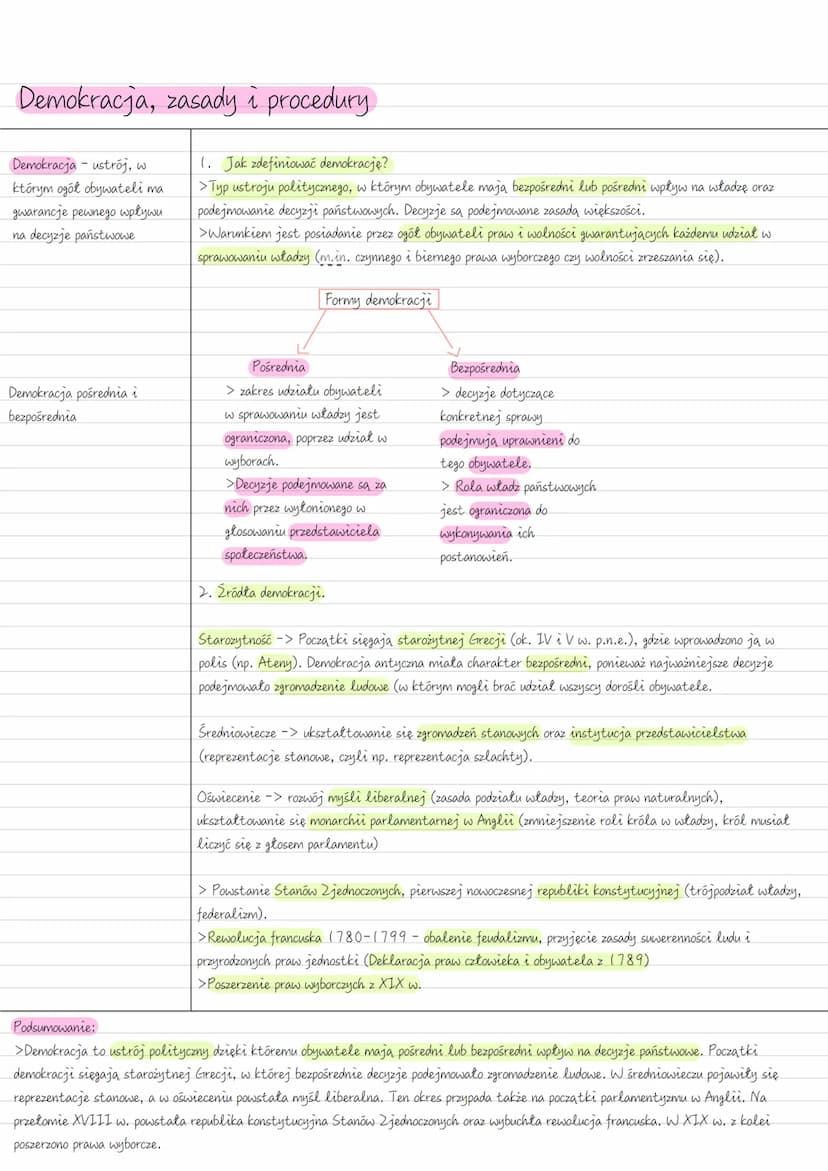 Demokracja, zasady i procedury
Demokracja - ustrój, w
którym ogół obywateli ma
gwarancje pewnego wpływu
na decyzje państwowe
1. Jak zdefiniować demokrację?
>Typ ustroju politycznego, w którym obywatele mają bezpośredni lub pośredni wpływ na władzę oraz
podejmowanie decyzji państwowych. Decyzje są podejmowane zasadą większości.
>Warunkiem jest posiadanie przez ogół obywateli praw i wolności gwarantujących każdemu udział w
sprawowaniu władzy (m.in. czynnego i biernego prawa wyborczego czy wolności zrzeszania się).
Formy demokracji
Demokracja pośrednia i
bezpośrednia
Pośrednia
> zakres udziału obywateli
w sprawowaniu władzy jest
ograniczona, poprzez udział w
wyborach.
>Decyzje podejmowane są za
nich przez wyłonionego w
głosowaniu przedstawiciela
społeczeństwa.
Bezpośrednia
> decyzje dotyczące
konkretnej sprawy
podejmują uprawnieni do
tego obywatele.
> Rola władz państwowych
jest ograniczona do
wykonywania ich
postanowień.
2. Źródła demokracji.
Starożytność -> Początki sięgają starożytnej Grecji (ok. IV i V w. p.n.e.), gdzie wprowadzono ją w
polis (np. Ateny). Demokracja antyczna miała charakter bezpośredni, ponieważ najważniejsze decyzje
podejmowało zgromadzenie ludowe (w którym mogli brać udział wszyscy dorośli obywatele.
Średniowiecze -> ukształtowanie się zgromadzeń stanowych oraz instytucja przedstawicielstwa
(reprezentacje stanowe, czyli np. reprezentacja szlachty).
Oświecenie -> rozwój myśli liberalnej (zasada podziału władzy, teoria praw naturalnych),
ukształtowanie się monarchii parlamentarnej w Anglii (zmniejszenie roli króla w władzy, król musiał
liczyć się z głosem parlamentu)
> Powstanie Stanów Zjednoczonych, pierwszej nowoczesnej republiki konstytucyjnej (trójpodział władzy,
federalizm).
>Rewolucja francuska 1780-1799 - obalenie feudalizmu, przyjęcie zasady suwerenności ludu i
przyrodzonych praw jednostki (Deklaracja praw człowieka i obywatela z 1789)
>Poszerzenie praw wyborczych z XIX w.
Podsumowanie:
>Demokracja to ustrój polityczny dzięki któremu obywatele mają pośredni lub bezpośredni wpływ na decyzje państwowe. Początki
demokracji sięgają starożytnej Grecji, w której bezpośrednie decyzje podejmowało zgromadzenie ludowe. W średniowieczu pojawiły się
reprezentacje stanowe, a w oświeceniu powstała myśl liberalna. Ten okres przypada także na początki parlamentyzmu w Anglii. Na
przełomie XVIII w. powstała republika konstytucyjna Stanów Zjednoczonych oraz wybuchła rewolucja francuska. W XIX w. z kolei
poszerzono prawa wyborcze.